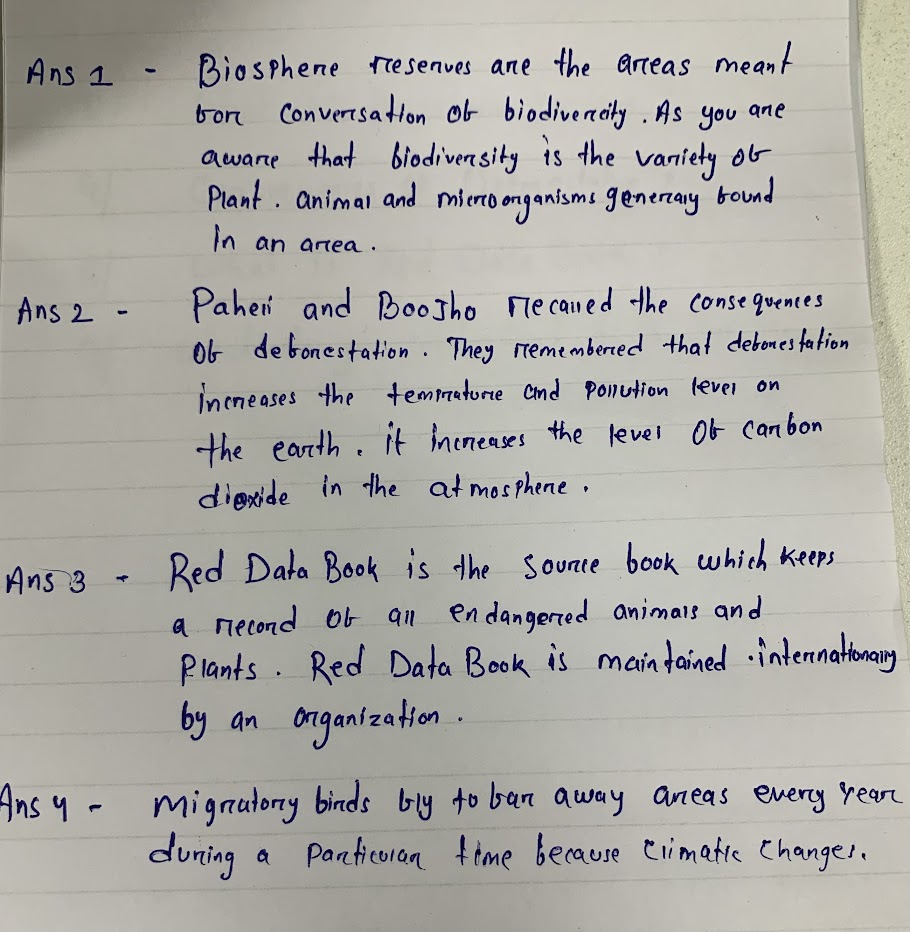 Ans 1 - Biosphere reserves are the areas meant
for Conversation of biodivercity. As you are
aware that biodiversity is the variety of
Plant. animal and microorganisms generaly found
in an area.
Ans 2 - Paheli and Boojho recalled the consequences
Of deforestation. They remembered that deforestation
increases the temprature and Pollution level on
the earth. it increases the level Of carbon
dioxide in the atmosphere.
Ans 3 - Red Data Book is the Source book which keeps
a record Of all endangered animals and
Plants. Red Data Book is maintained internationally
by an organization.
Ans 4 - Migratory birds fly to far away areas every year
during a Particular time because Climatic Changes.